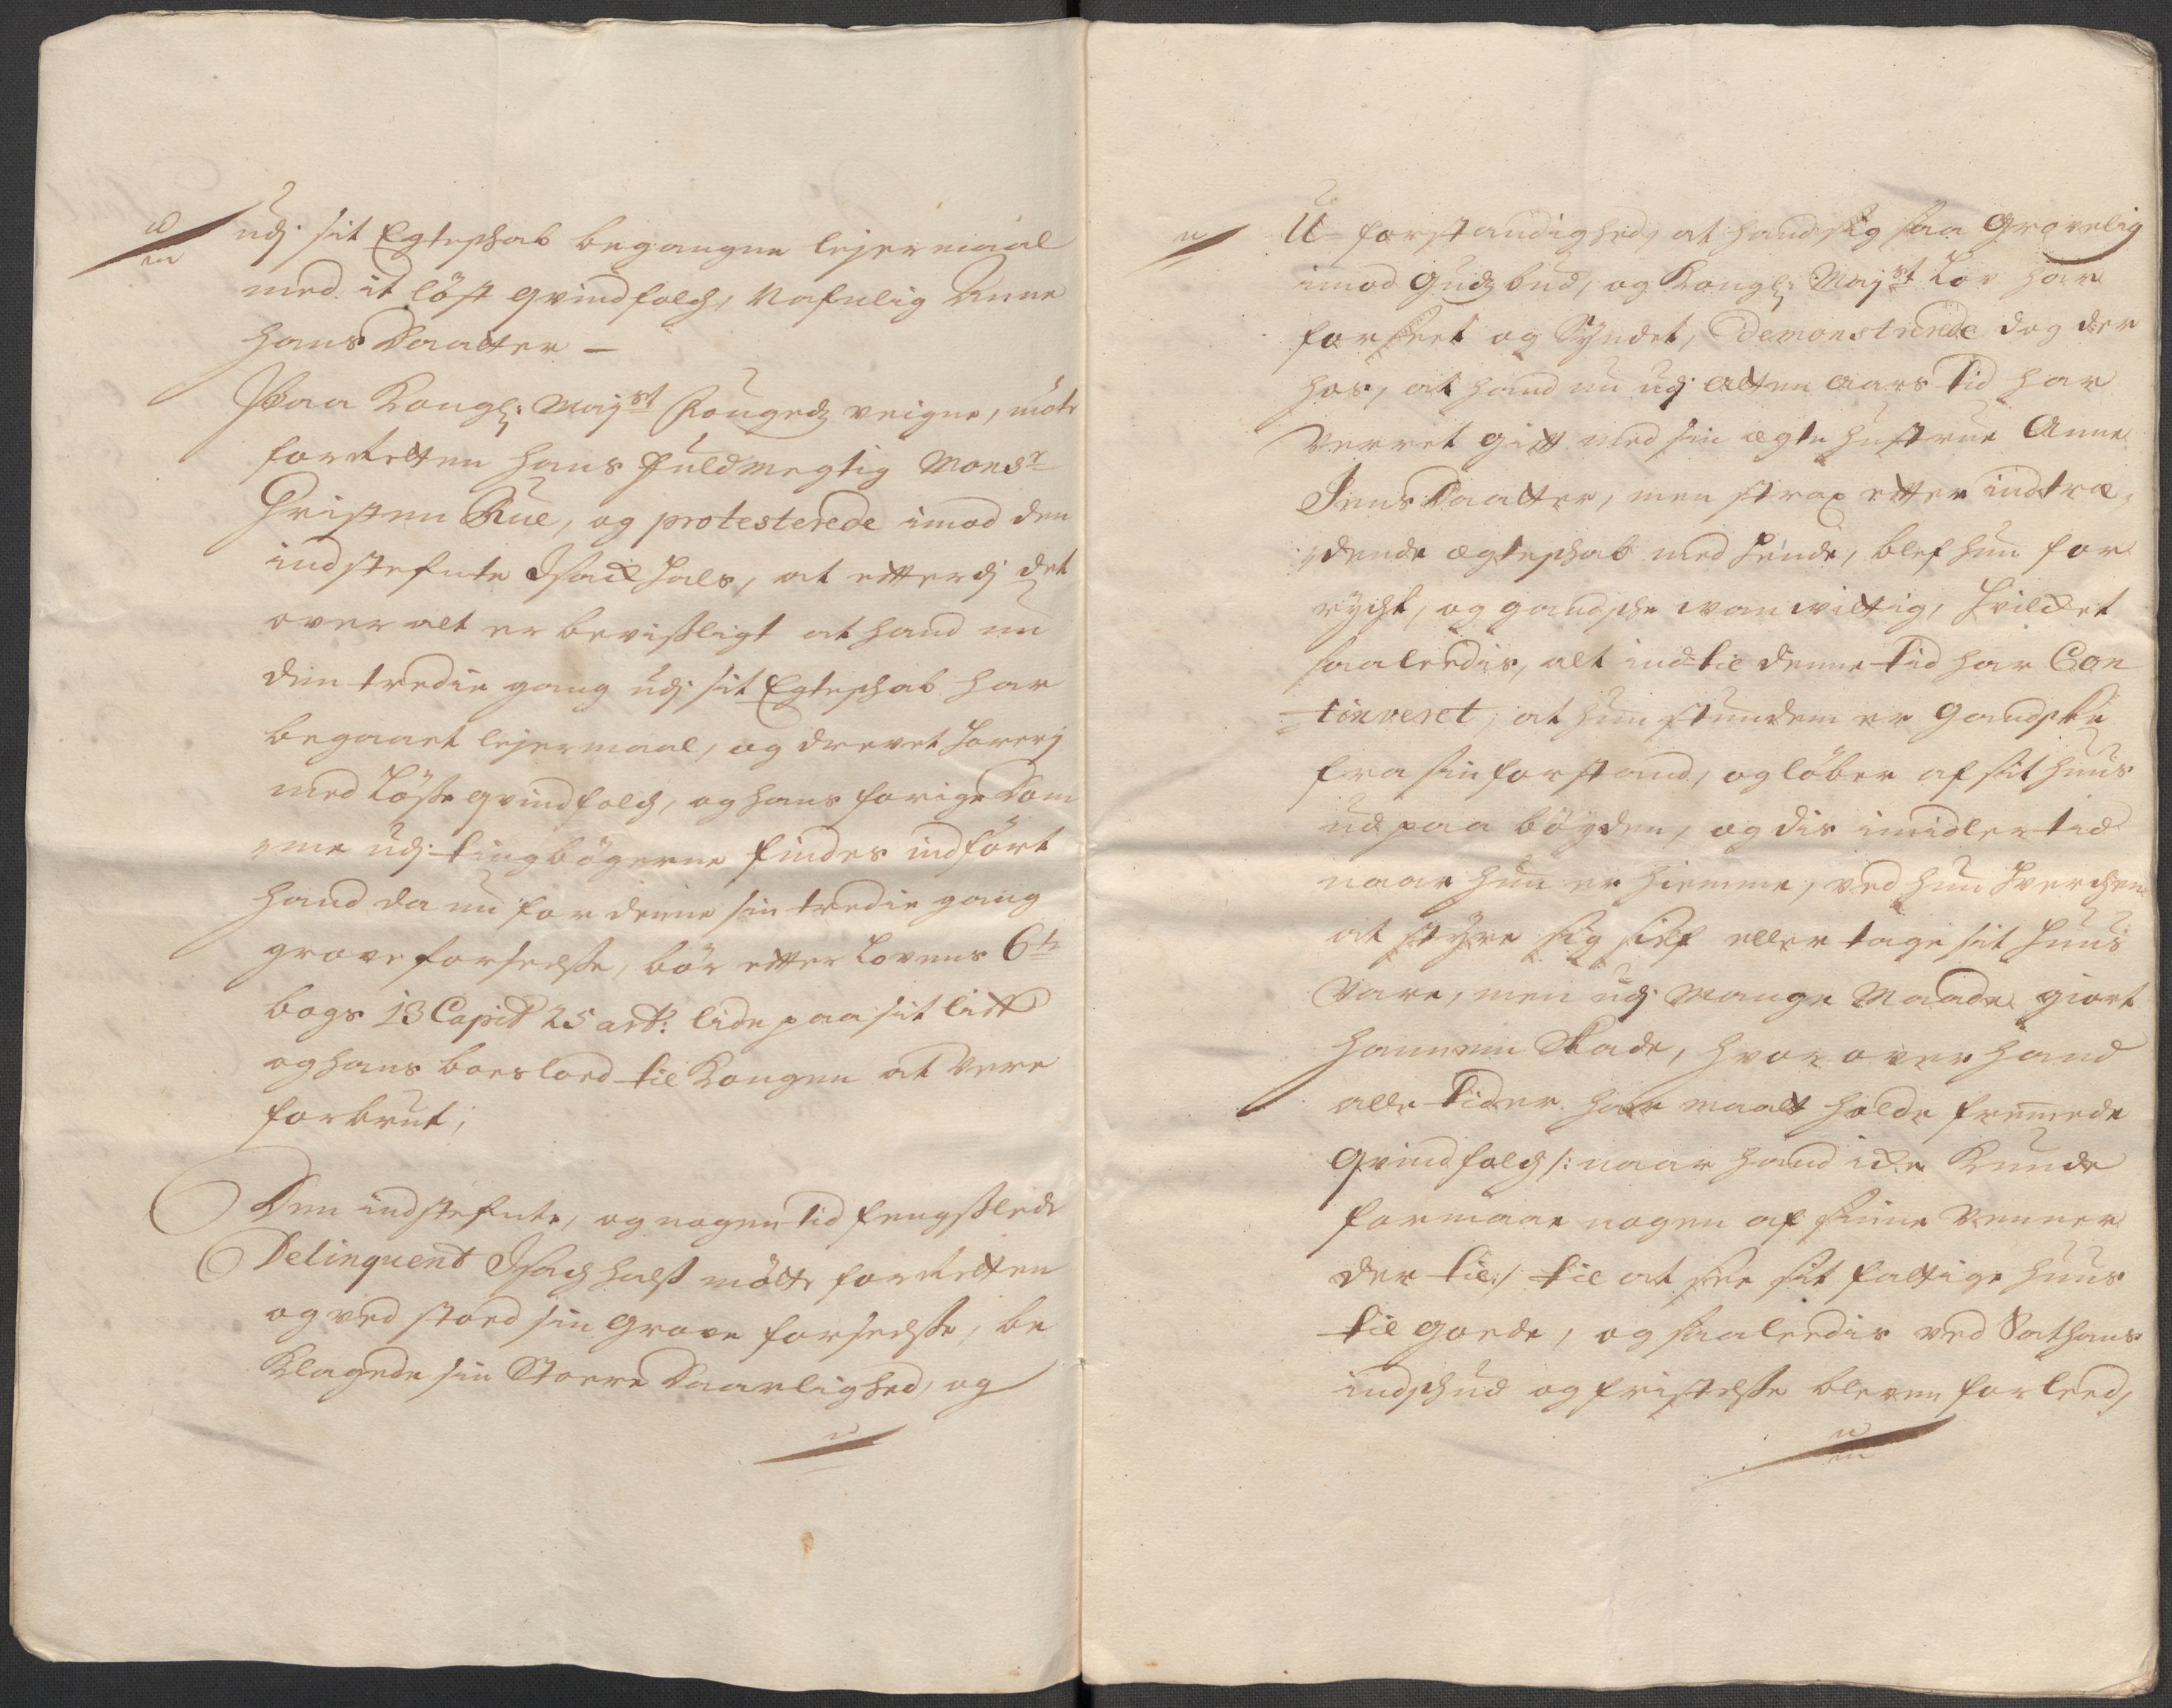 udj sit Egteschab begangne lejermaal
med it løst qvindfolch, Nafnlig Anne
HansDaatter –
Paa Kongl: Mayst. Fougedz veigne, møtte
for Retten hans fuldmegtig Monsr.
Christen Rue, og protesterede imod den
indstefnte Isach Hals, at efterdj det
over alt er bevisligt at hand nu
den tredie gang udj sit Egteschab har
begaaet lejermaal, og drevet Horerj
med Løsse qvindfolch, og hans forige Dom
me udj tingbøgerne findes indført
hand da nu for denne sin tredie gang
grove forseelsse, bør etter Lovens 6te
bogs 13 Capit 25 art: lide paa sit lif
og hans boeslod til Kongen at Vere
forbrut;
Den indstefnte, og nogen tid fengsslede
Delinquent Isach Halss møtte for Retten
og ved stoed sin grove forseelsse, be
Klagede sin Storre Daarlighed, og
U-forstandighed, at hand sig saa Grovelig
imod Gudz bud, og Kongl: Mayst. Lov har
forseet og Syndet, Demonstrerede dog der
hos, at hand nu udj atten aars tid har
Verret gift med sin ægte hustrue Anne
JensDaatter, men strax etter indtræ,
dende ægteschab med hende, blef hun for
rycht, og gandsche wanwittig, hvilchet
saaleedis, alt indtil denne tid har Con
tinveret, at hun stundom er gandske
fra sin forstand, og løber af sit huus
ud paa bøyden, og dis imidlertid
naar hun er hiemme, ved hun hverchen
at styre sig self eller tage sit huus
Vare, men udj Mange Maade giort
hannem Skade, hvor over hand
alle tider har maatt holde fremede
qvindfolch /: naar hand iche Kunde
formaae nogen af sinne Venner
der til :/ til at see sit fattige huus
til goede, og saaleedis ved Sathans
indschud og fristelsse bleven forleed,